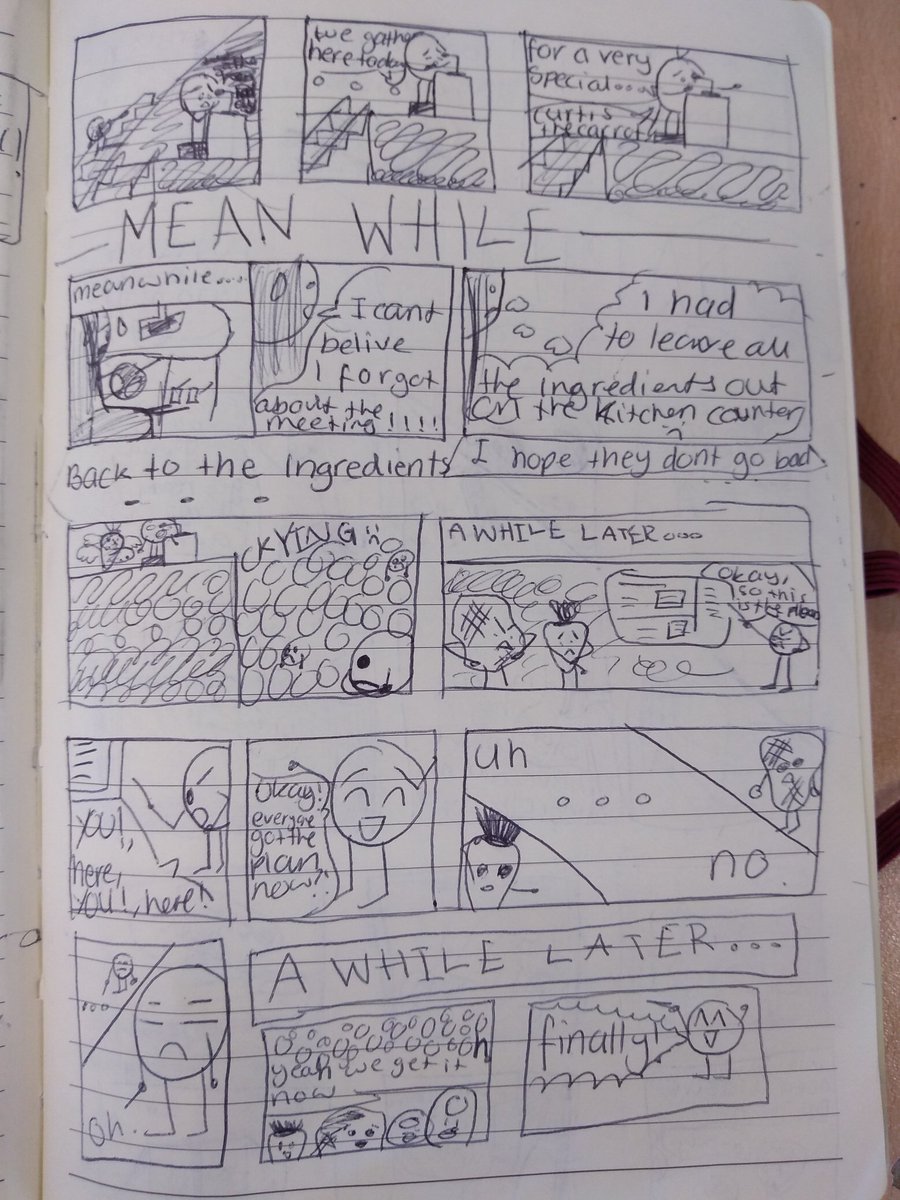 we gather
here today
for a very
special...
curtis
the carrot
MEAN WHILE
meanwhile....
I cant
belive
I forgot
about the
meeting!!!!
I had
to leave all
the ingredients out
on the kitchen counter
I hope they dont go bad
Back to the ingredients
...
CRYING
A WHILE LATER...
Okay,
so this
is the plan
YOU!,
here,
YOU!, here!
Okay!
everyone
got the
plan
now?!
uh
...
no.
...
oh.
A WHILE LATER...
yeah we get it
now
finally!